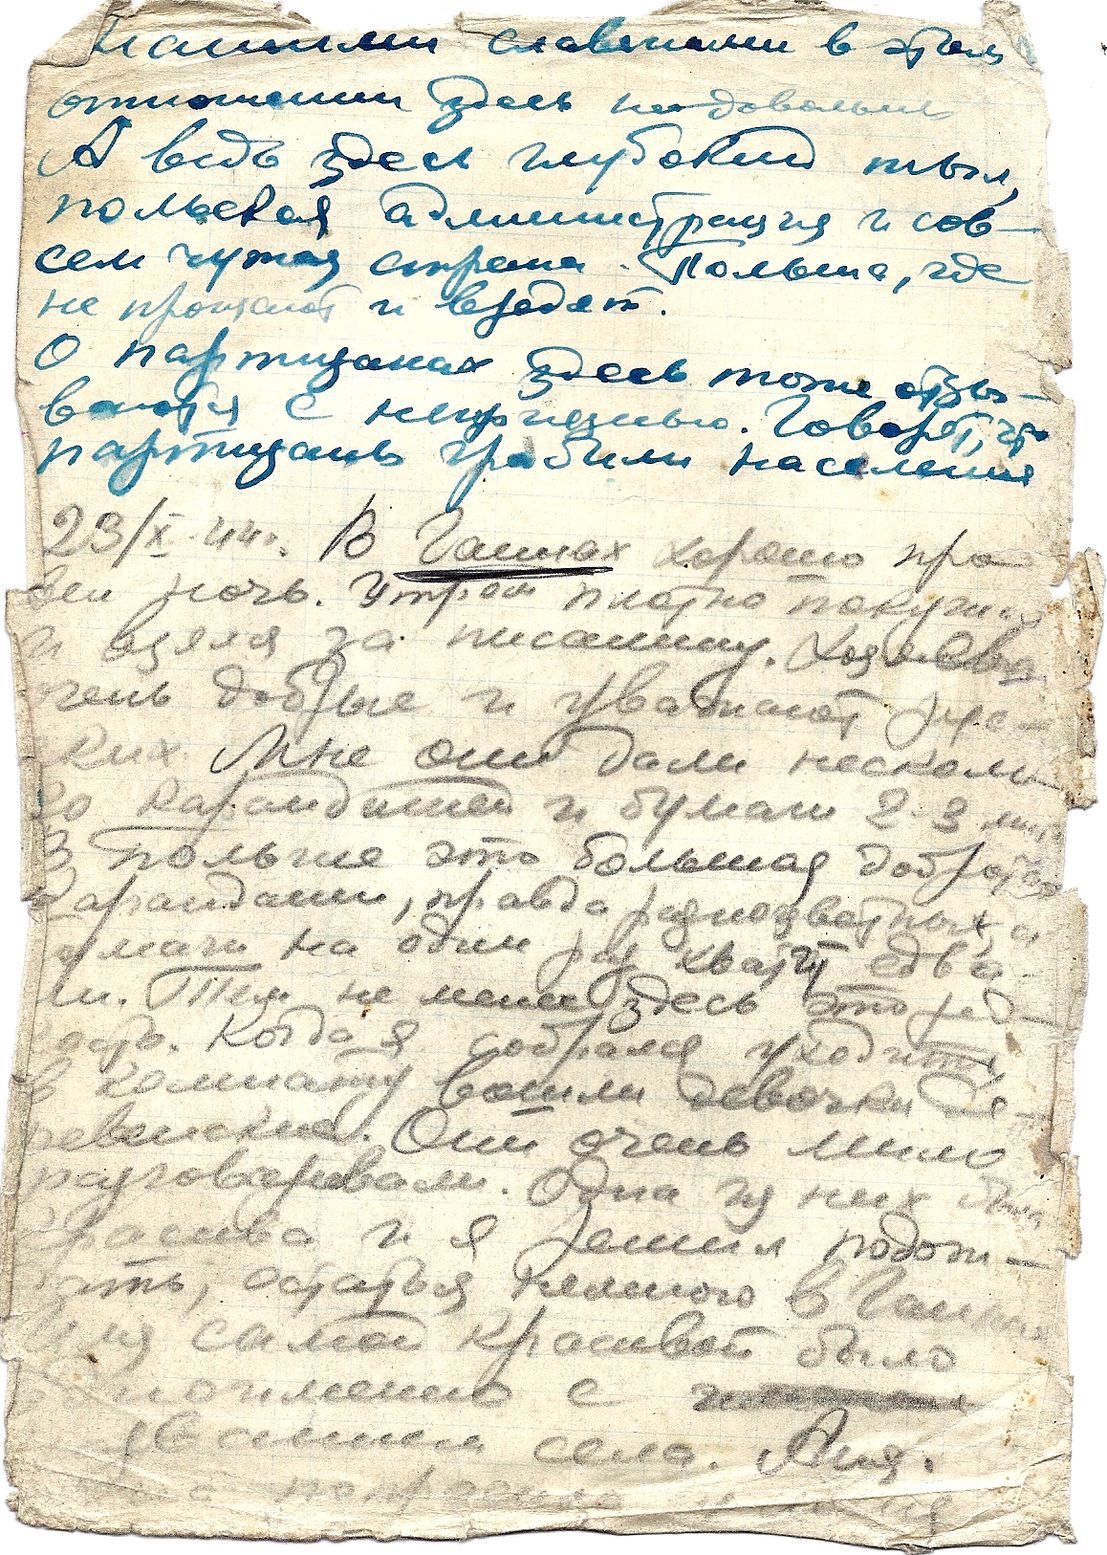 нашими славянами в этом
отношении здесь недовольны
А ведь здесь глубокий тыл,
польская администрация и сов-
сем чужая страна. Польша, где
не прощают и вредят.
О партизанах здесь тоже отзы-
ваются с неприязнью. Говорят, что
партизаны грабили население
23/X 44г. В Ганнах хорошо про
вел ночь. Утром плотно покушал
и взялся за писанину. Хозяева
очень добрые и уважают рус-
ких. Мне они дали несколь
ко карандашей и бумаги 2-3 листа
В Польше это большая доброта
Карандаши, правда разноцветных, а
бумаги на один раз хватит едва
ли. Тем не менее здесь это ред-
кость. Когда я собрался уходить,
в комнату вошли девочки де-
ревенские. Они очень мило
разговаривали. Одна из них была
красива и я решил подож-
дать, остаться немного в Ганнах
Имя самой красивой было
с
названием села. Аня.
попросила